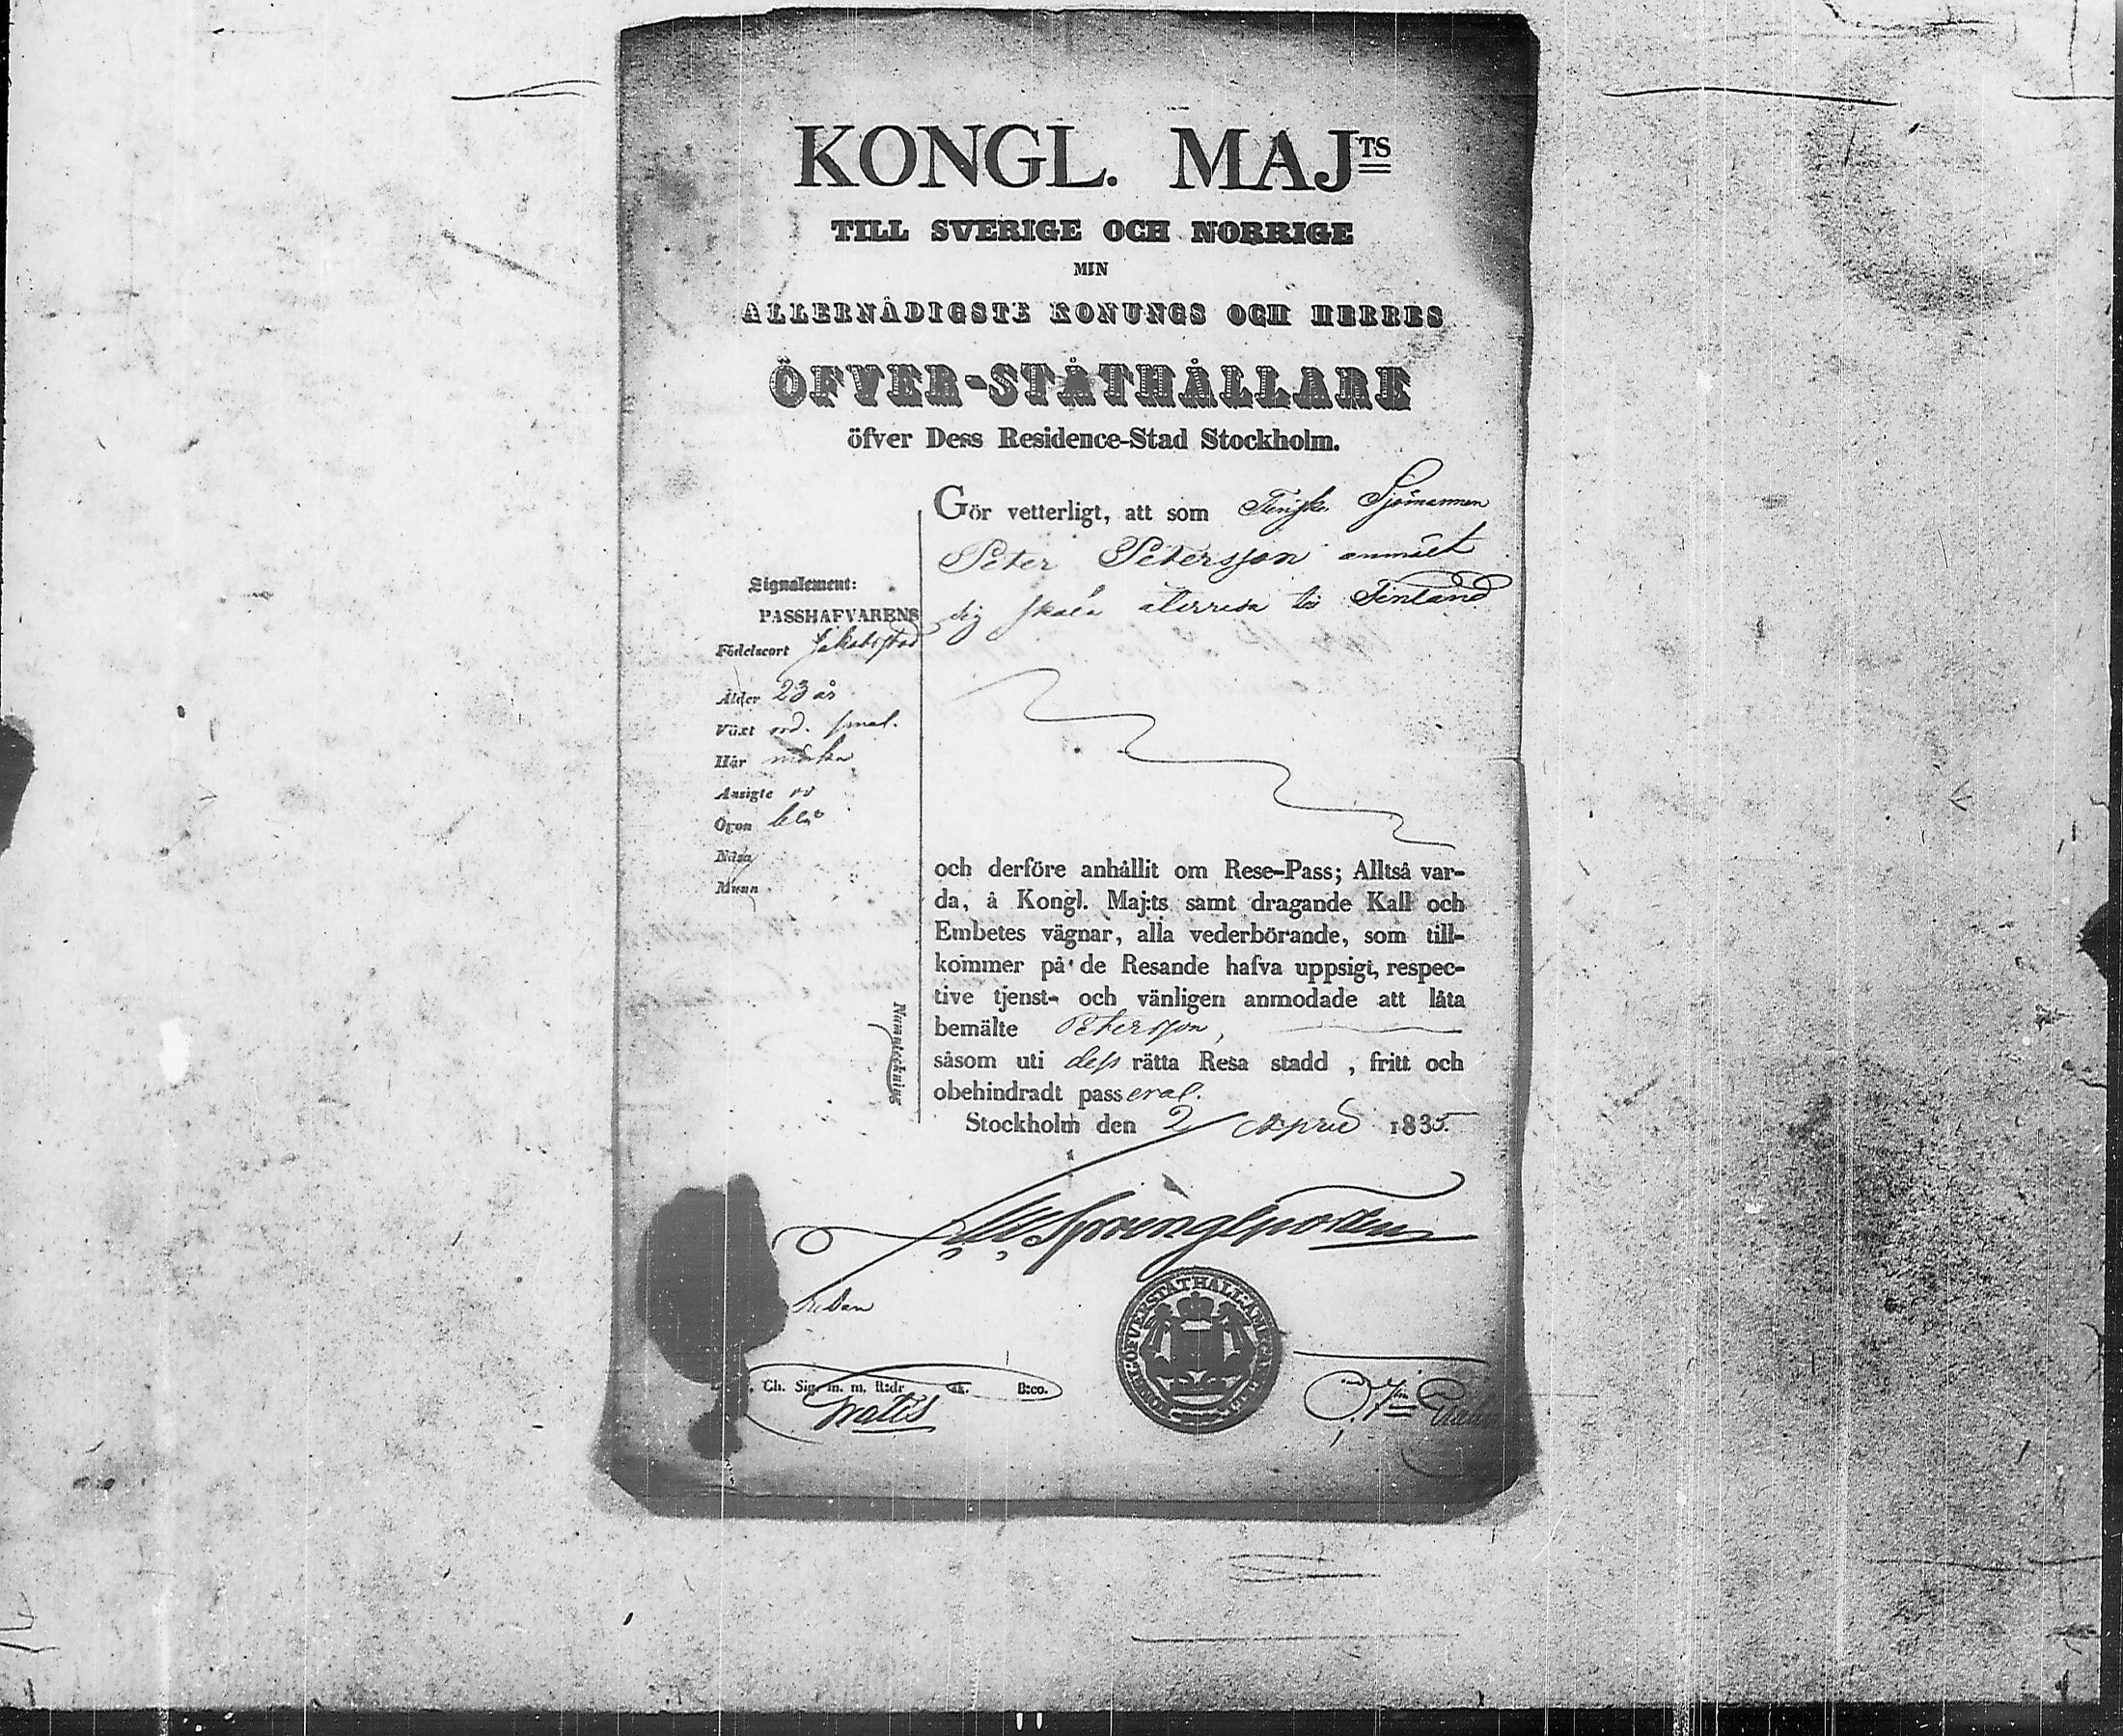 KONGL. MAJTS
TILL SVERIGE OCH NORRIGE
MIN
ALLERNÅDIGSTE KONUNGS OCH HERRES
ÖFVER-STÅTHÅLLARE
öfver Dess Residence-Stad Stockholm.
Gör vetterligt, att som Finske Sjömannen
Peter Petersson anmält
sig skola återresa till Finland
Signalement:
PASSHAFVARENS
Födelseort Jakobstad
Ålder 23 år
Växt ord. smal.
Hår mörka
Ansigte
Ögon blå
Näsa
Munn
Namnteckning
och derföre anhållit om Rese-Pass; Alltså var-
da, å Kongl. Maj:ts samt dragande Kall och
Embetes vägnar, alla vederbörande, som till-
kommer på de Resande hafva uppsigt, respec-
tive tjenst- och vänligen anmodade att låta
bemälte Petersson,
såsom uti dess rätta Resa stadd , fritt och
obehindradt passeral.
Stockholm den 2 April 1835.
Sprengtporten
ÖFVERSTÅTHÅLL:
Ch. Sig. m. m. R:dr sk. B:co.
Gratis